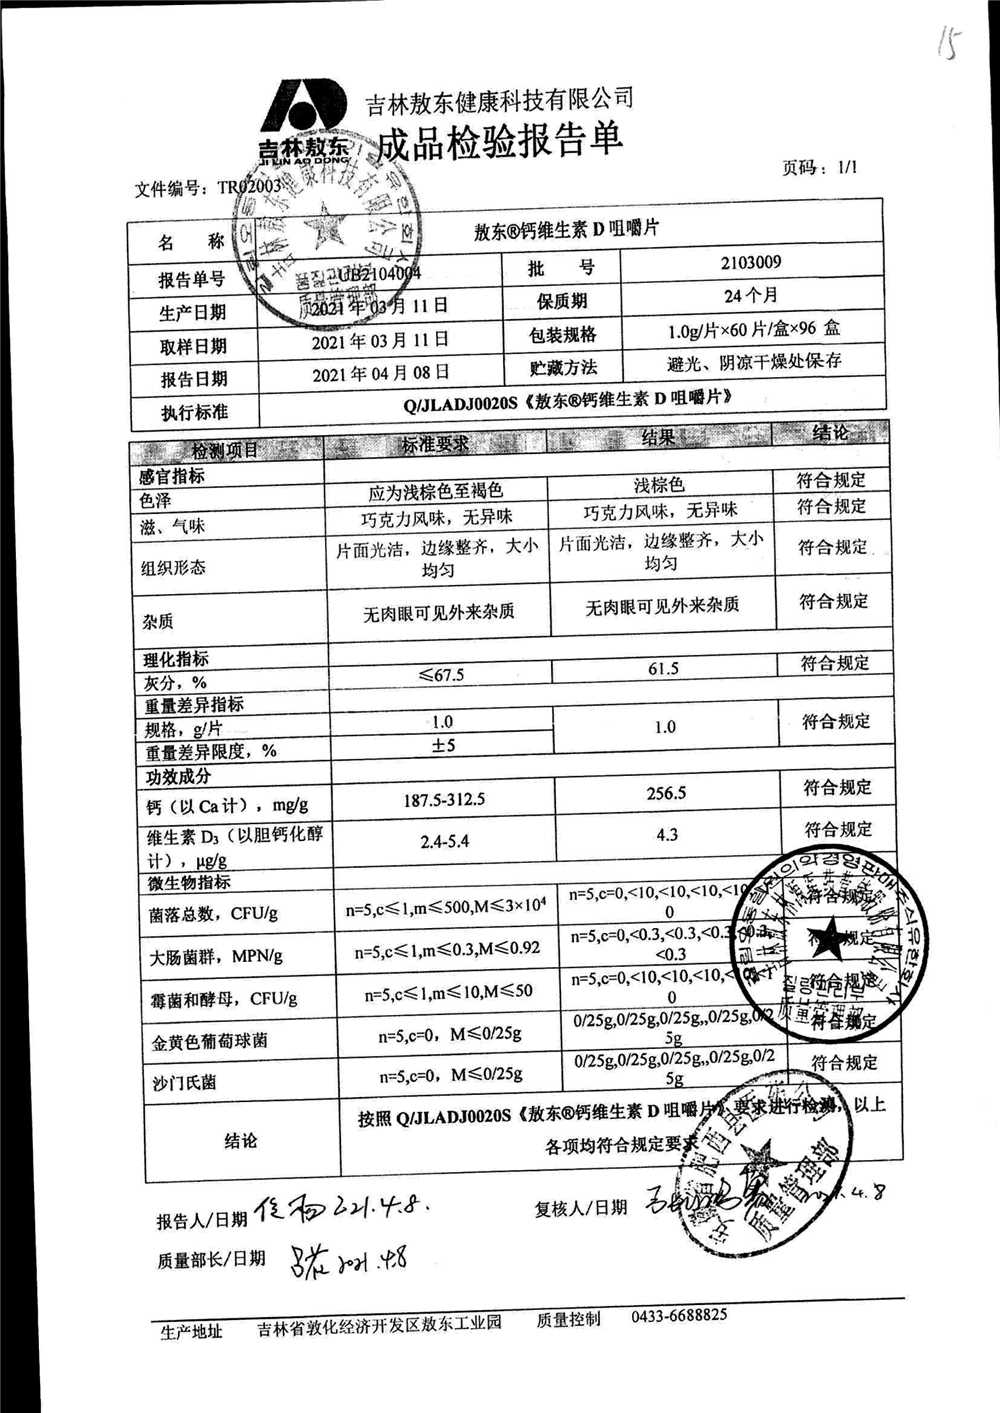 15
吉林敖东
JI LIN AO DONG
吉林敖东健康科技有限公司
成品检验报告单
文件编号：TR02003
页码：1/1
名 称 敖东®钙维生素 D 咀嚼片
报告单号 UB2104004 批 号 2103009
生产日期 2021 年 03 月 11 日 保质期 24 个月
取样日期 2021 年 03 月 11 日 包装规格 1.0g/片×60 片/盒×96 盒
报告日期 2021 年 04 月 08 日 贮藏方法 避光、阴凉干燥处保存
执行标准 Q/JLADJ0020S《敖东®钙维生素 D 咀嚼片》
检测项目 标准要求 结果 结论
感官指标
色泽 应为浅棕色至褐色 浅棕色 符合规定
滋、气味 巧克力风味，无异味 巧克力风味，无异味 符合规定
组织形态 片面光洁，边缘整齐，大小均匀 片面光洁，边缘整齐，大小均匀 符合规定
杂质 无肉眼可见外来杂质 无肉眼可见外来杂质 符合规定
理化指标
灰分，% ≤67.5 61.5 符合规定
重量差异指标
规格，g/片 1.0 1.0 符合规定
重量差异限度，% ±5
功效成分
钙（以 Ca 计），mg/g 187.5-312.5 256.5 符合规定
维生素 D₃（以胆钙化醇计），μg/g 2.4-5.4 4.3 符合规定
微生物指标
菌落总数，CFU/g n=5,c≤1,m≤500,M≤3×10⁴ n=5,c=0,<10,<10,<10,<10 符合规定
大肠菌群，MPN/g n=5,c≤1,m≤0.3,M≤0.92 n=5,c=0,<0.3,<0.3,<0.3,<0.3,<0.3 符合规定
霉菌和酵母，CFU/g n=5,c≤1,m≤10,M≤50 n=5,c=0,<10,<10,<10, 符合规定
金黄色葡萄球菌 n=5,c=0，M≤0/25g 0/25g,0/25g,0/25g,,0/25g,0/25g 符合规定
沙门氏菌 n=5,c=0，M≤0/25g 0/25g,0/25g,0/25g,,0/25g,0/25g 符合规定
结论 按照 Q/JLADJ0020S《敖东®钙维生素 D 咀嚼片》要求进行检测，以上
各项均符合规定要求
质量管理部
报告人/日期 2021.4.8.
复核人/日期 4.8
质量部长/日期 2021.4.8
生产地址 吉林省敦化经济开发区敖东工业园 质量控制 0433-6688825